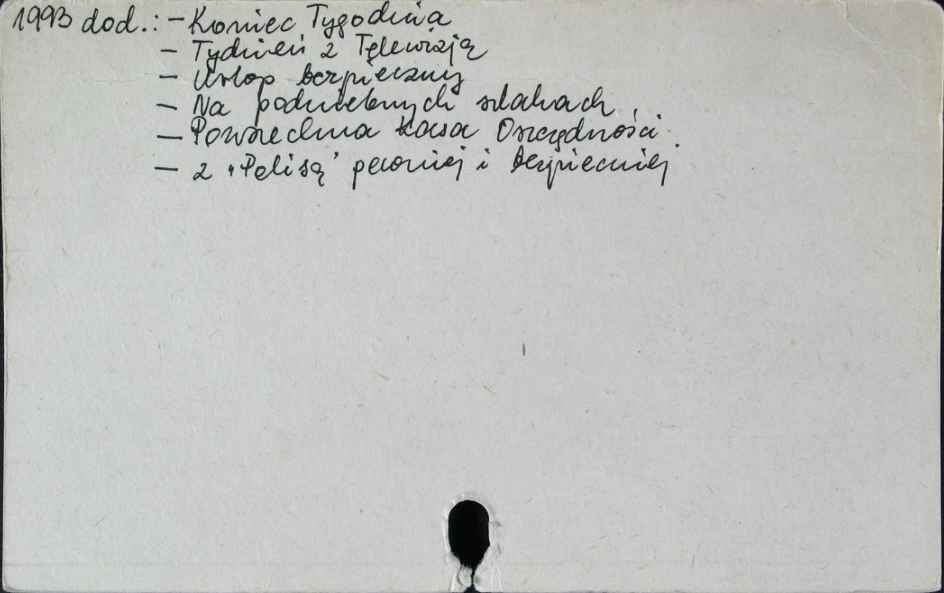 1993 dod.: - Koniec Tygodnia
- Tydzień z Telewizją
- Urlop bezpieczny
- Na podniebnych szlakach
- Powszechna Kasa Oszczędności
- z "Polisą" pewniej i bezpieczniej